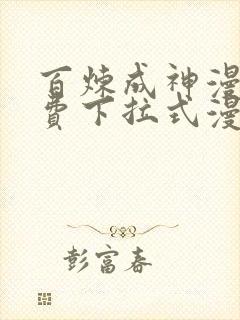 百炼成神漫
费下拉式漫
彭富春